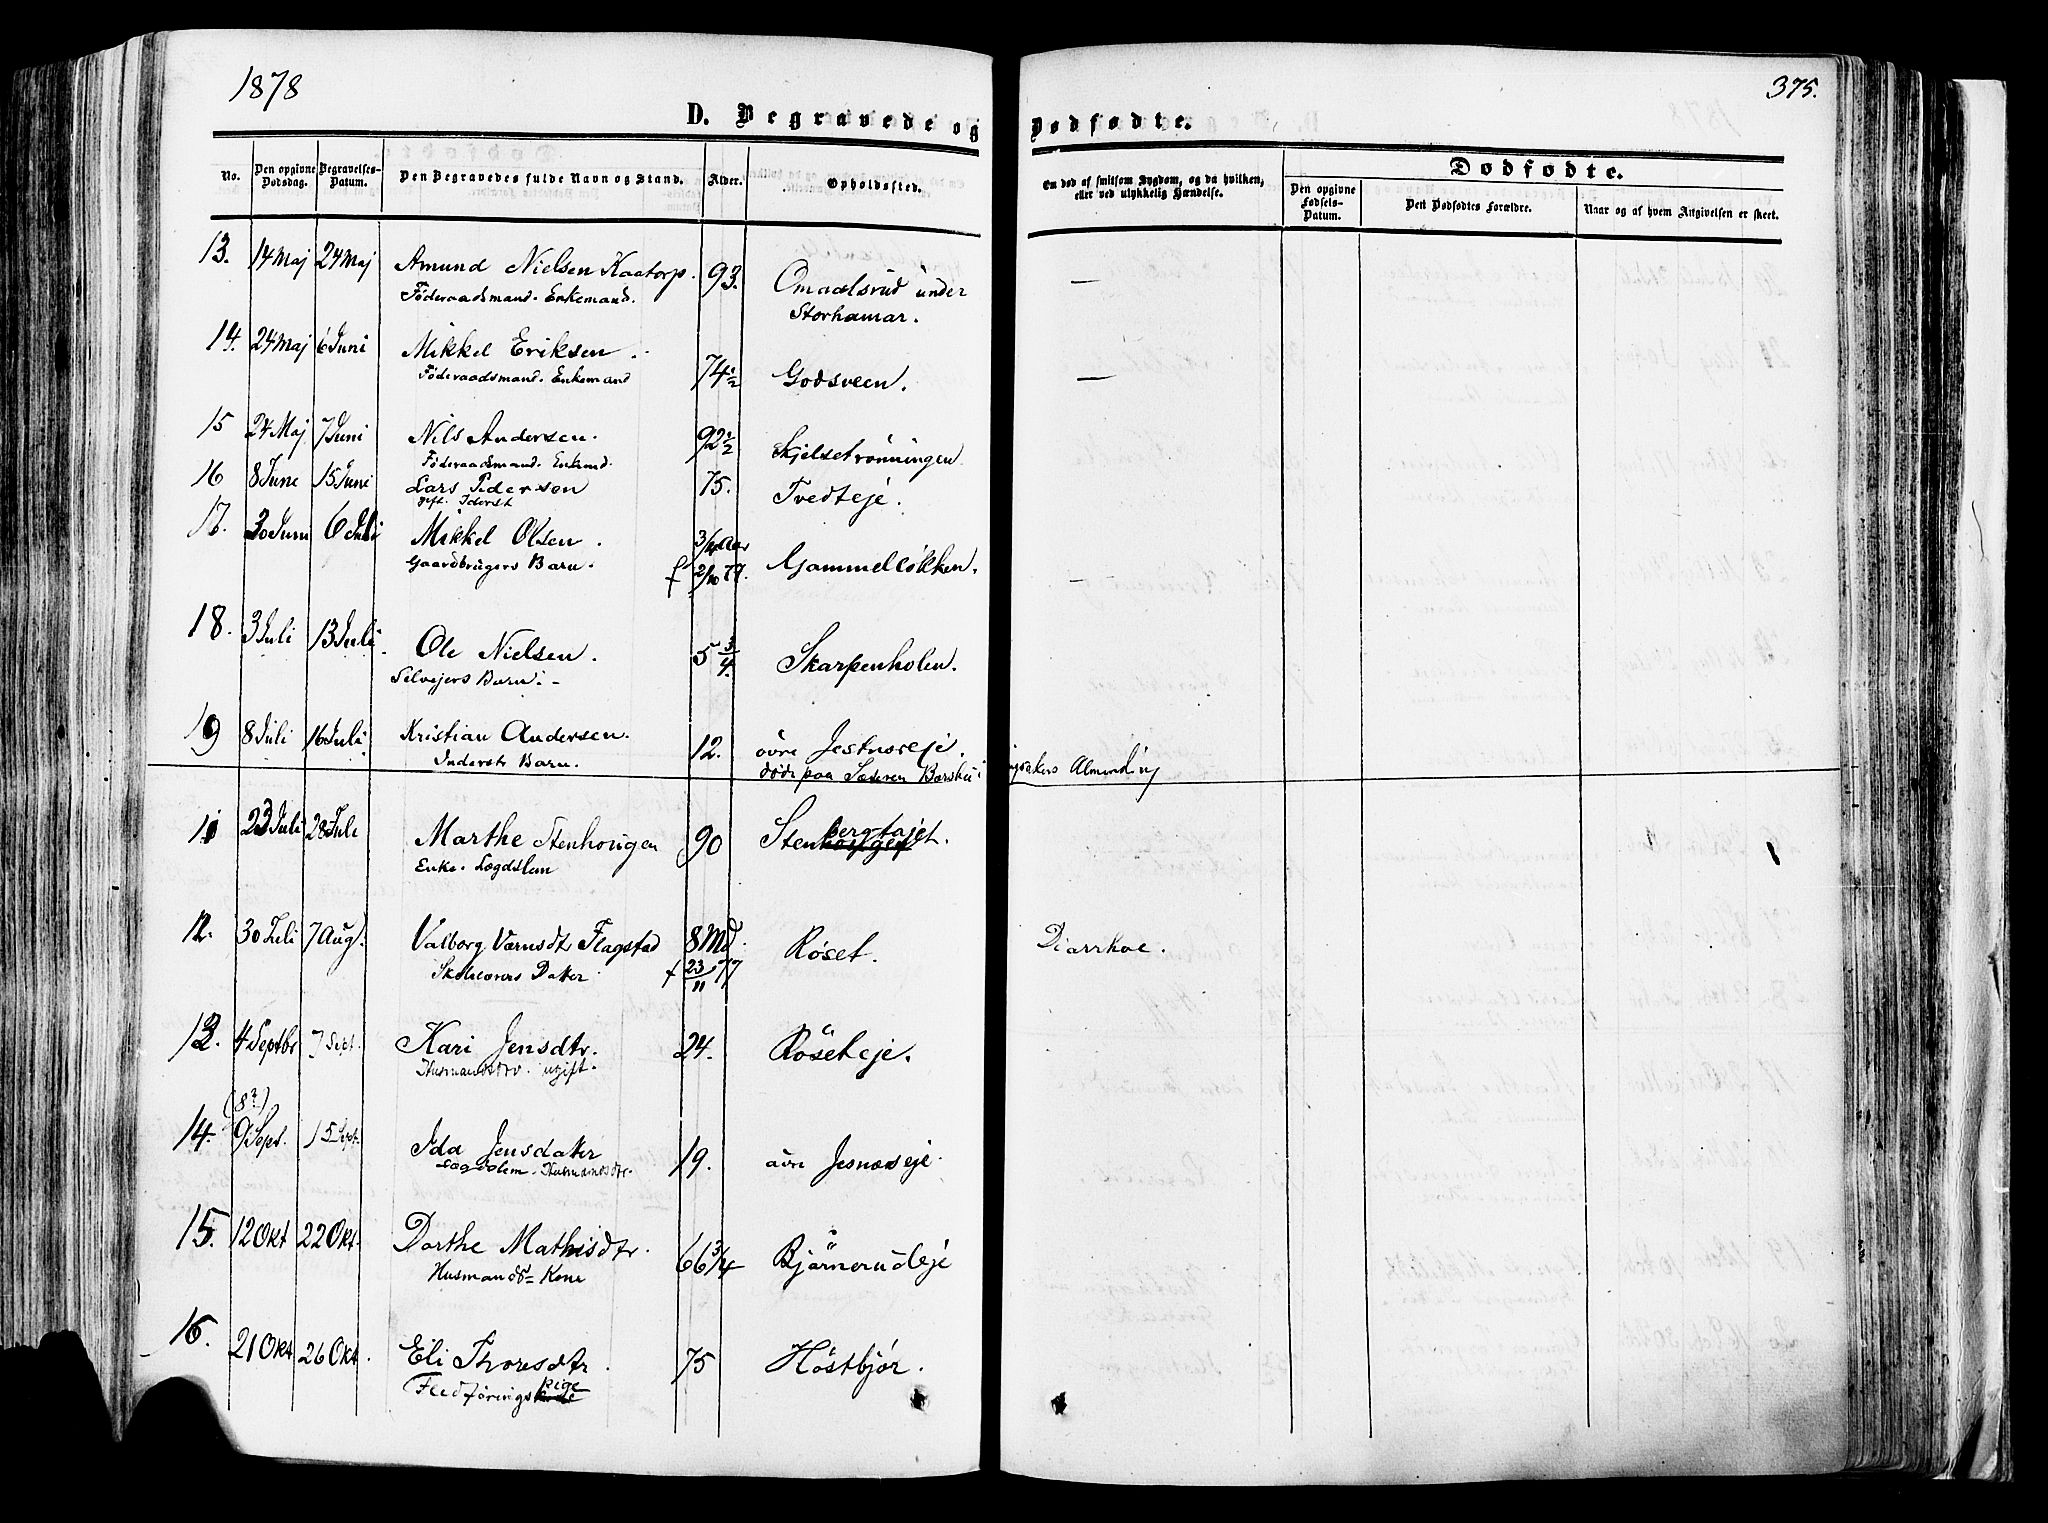 1878
375.
D. Begravede og Dødfødte.
No.
Den opgivne Dødsdag.
Begravelses-Datum.
Den Begravedes fulde Navn og Stand.
Alder.
Opholdssted.
Om død af smitsom Sygdom, og da hvilken, eller ved ulykkelig Hændelse.
Dødfødte.
Den opgivne Fødsels-Datum.
Det Dødfødtes Forældre.
Naar og af hvem Angivelsen er skeet.
13. 14 Maj 24 Maj Amund Nielsen Kaatorp. 93. Omaalsrud under —
Føderaadsmand. Enkemand. Storhamar.
14. 24 Maj 6 Juni Mikkel Eriksen. 74 1/2 Godsveen. —
Føderaadsmand. Enkemand
15 24 Maj 7 Juni Nils Andersen. 92 1/2 Skjelsetrønningen
Føderaadsmand. Enkmd.
16 8 June 15 Juni Lars Pedersen 75. Tvedteje.
gift. Inderst
17. 30 Juni 6 Juli Mikkel Olsen. 3/4 Aar Gammelløkken. —
Gaardbrugers Barn. f 2/10 77.
18. 3 Juli 13 Juli Ole Nielsen. 5 3/4. Skarpenholen.
Selvejers Barn. -
19 8 Juli 16 Juli Kristian Andersen. 12. øvre Jesnæseje.
Inderst Barn. døde paa Sæteren i Ringsakers Almending
11 23 Juli 28 Juli Marthe Stenhougen 90 Stenbergtajet.
Enke. Lægdslem
12. 30 Juli 7 Aug. ValborgVærnsdtr Flagstad 8 Md. Røset. Diarrhoe.
Skolelærers Datter. f 23/11 77
13. 4 Septbr 7 Sept. Kari Jensdtr. 24. Røseteje.
Husmandsdtr. ugift.
(8?)
14. 9 Sept. 15 Sept. Ida Jensdatter 19. øvre Jesnæseje.
Lægdslem. Husmandsdtr.
15. 12 Okt 22 Okt. Dorthe Mathisdtr. 66 3/4 Bjørnerudeje
Husmands Kone
16. 21 Okt 26 Okt. Eli Thoresdtr. 75 Høstbjør.
Fledførings pige